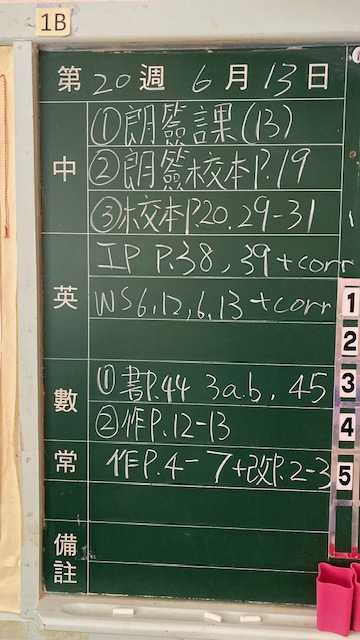 1B
第20週 6月13日
中
①朗簽課(13)
②朗簽校本P.19
③校本P.20.29-31
英
IP P.38, 39 + corr
WS 6.12, 6.13 + corr
數
①書P.44 3a.b, 45
②作P.12-13
常
作P.4-7+改P.2-3
備註
1
2
3
4
5